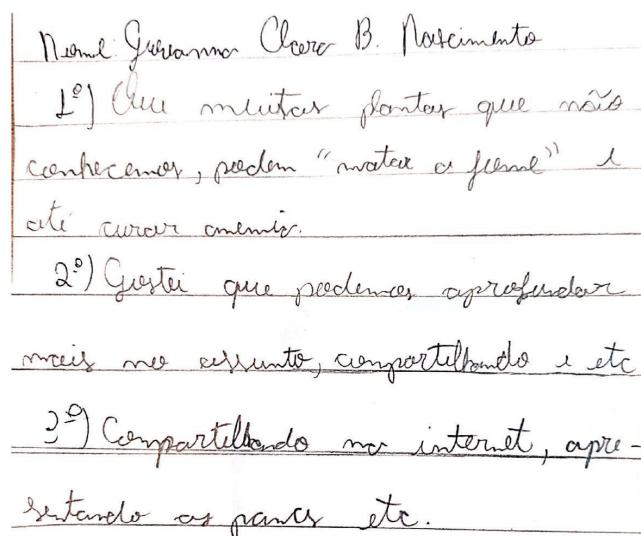 Nome Giovanna Clara B. Nascimento
1º) Que muitas plantas que não
conhecemos, podem "matar a fome" e
até curar anemia.
2º) Gostei que podemos aprofundar
mais no assunto, compartilhando e etc
3º) Compartilhando na internet, apre-
sentando as pancs etc.